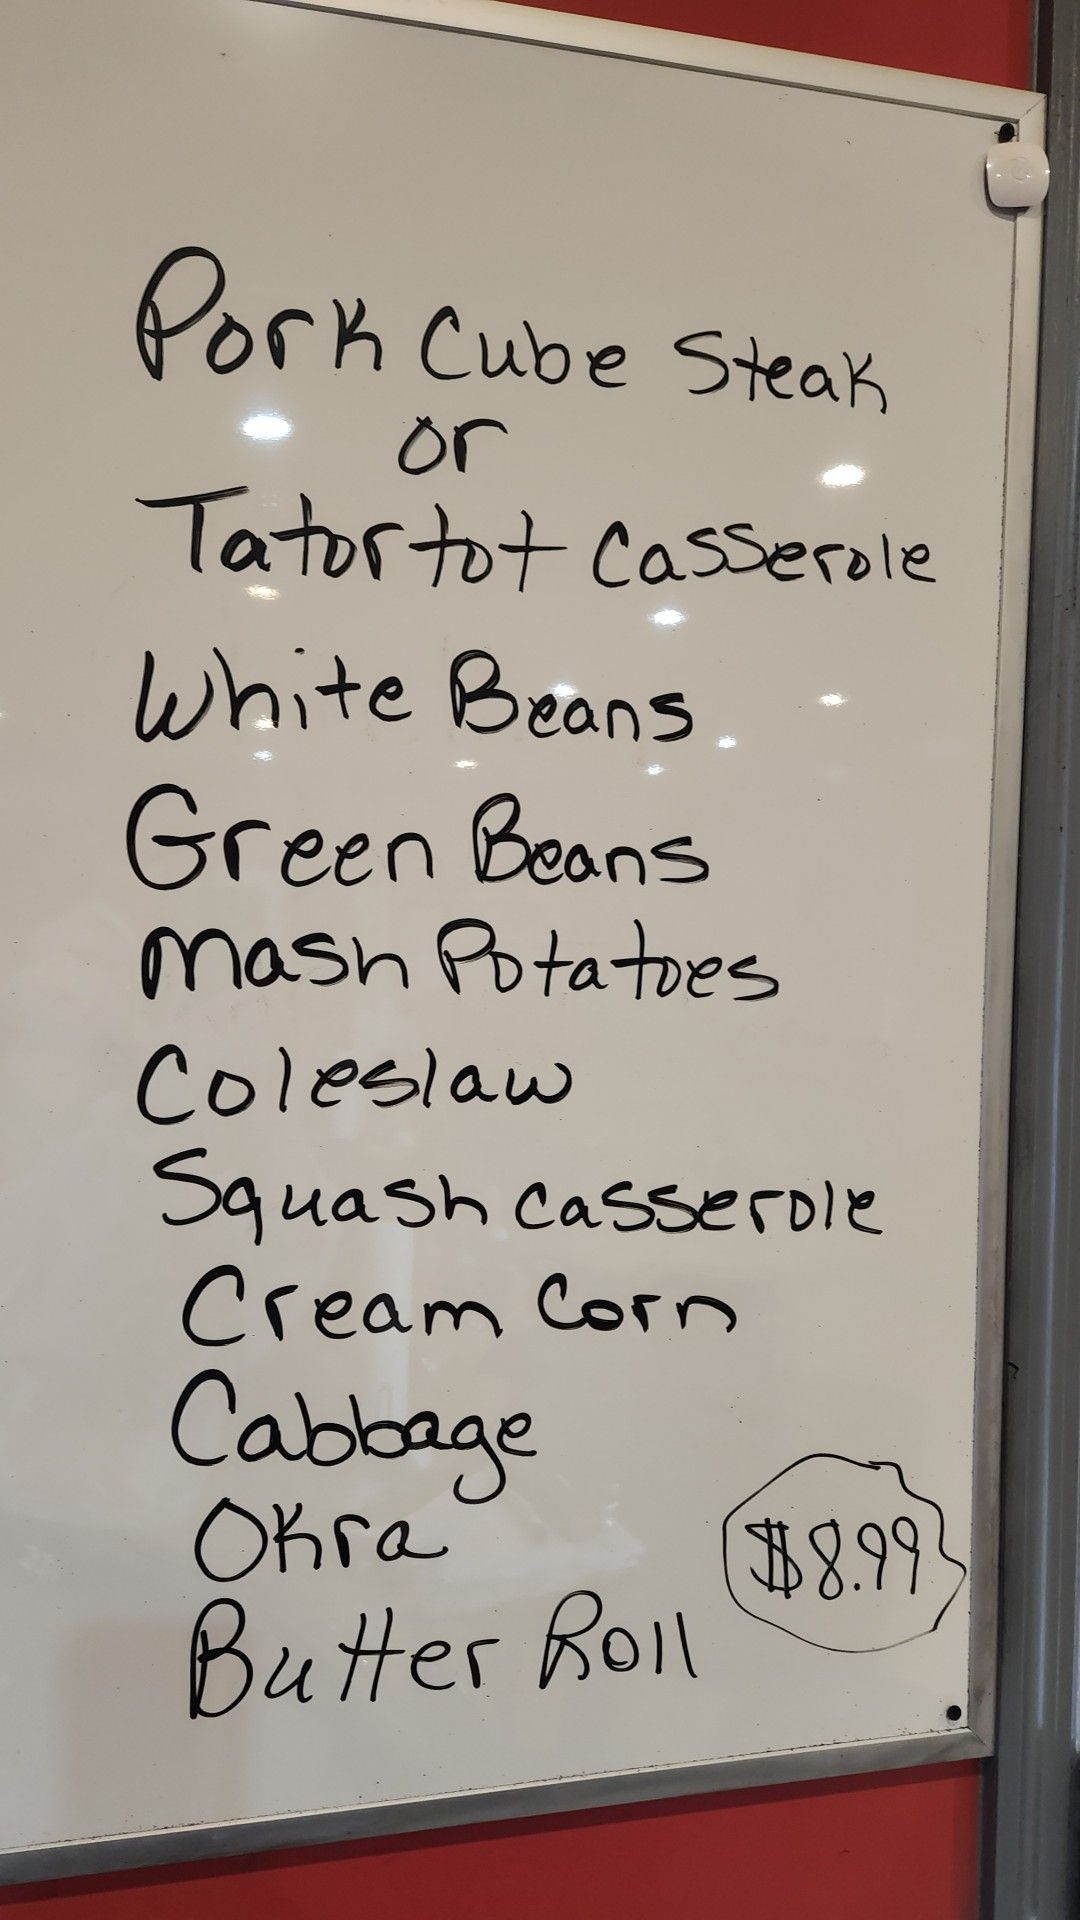 Pork Cube Steak
or
Tator tot Casserole
White Beans
Green Beans
Mash Potatoes
Coleslaw
Squash casserole
Cream Corn
Cabbage
Okra
$8.99
Butter Roll